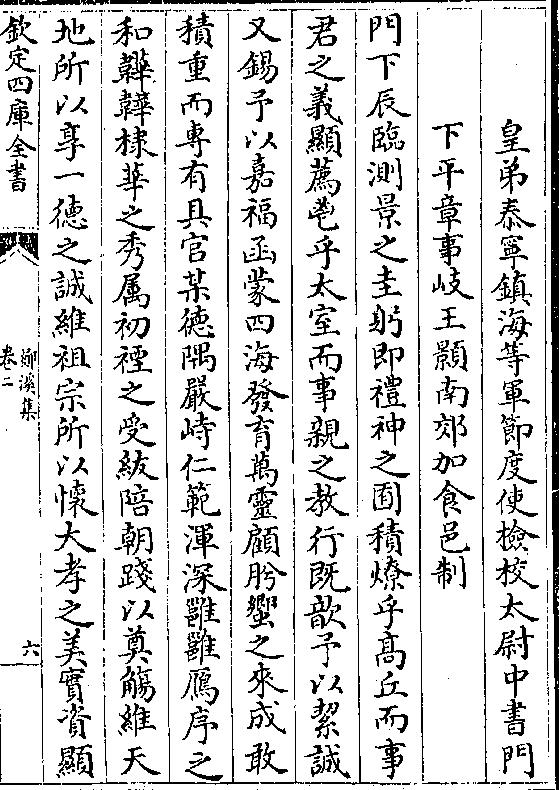 皇弟泰寧鎮海等軍節度使檢校太尉中書門
下平章事岐王顥南郊加食邑制
門下辰臨測景之圭躬即禮神之囿積燎乎高丘而事
君之義顯薦鬯乎太室而事親之教行既歆予以絜誠
又錫予以嘉福函蒙四海發育萬靈顧肸蠁之來成敢
積重而專有具官某德隅嚴峙仁範渾深雝雝鴈序之
和韡韡棣華之秀属初禋之受紱陪朝踐以奠觴維天
地所以享一德之誠維祖宗所以懷大孝之美實資顯
欽定四庫全書
鄖溪集
卷二
六